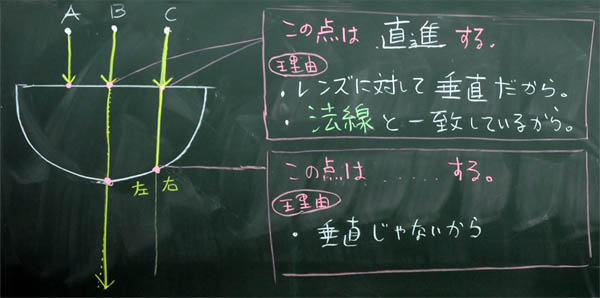 A B C
この点は 直進 する。
理由
・レンズに対して垂直だから。
・法線と一致しているから。
左 右
この点は ...... する。
理由
・垂直じゃないから